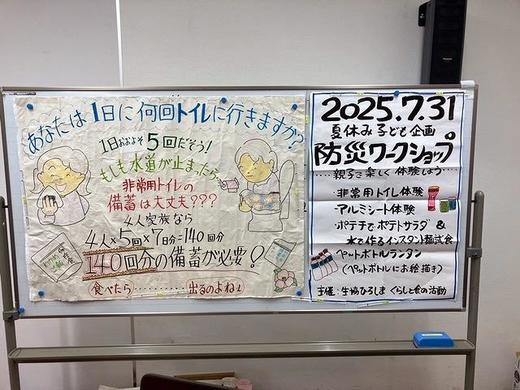 あなたは1日に何回トイレに行きますか?
1日おおよそ5回だそう!
もしも水道が止まったら…
非常用トイレの
備蓄は大丈夫???
4人家族なら
4人×5回×7日分=140回分
140回分の備蓄が必要!
食べたら……出るのよね!
2025.7.31
夏休み子ども企画
防災ワークショップ
……親子で楽しく体験しよう……
・非常用トイレ体験
・アルミシート体験
・ポテチでポテトサラダ &
水で作るインスタント麺試食
・ペットボトルランタン
(ペットボトルにお絵描き)
主催:生協ひろしま くらしと食の活動